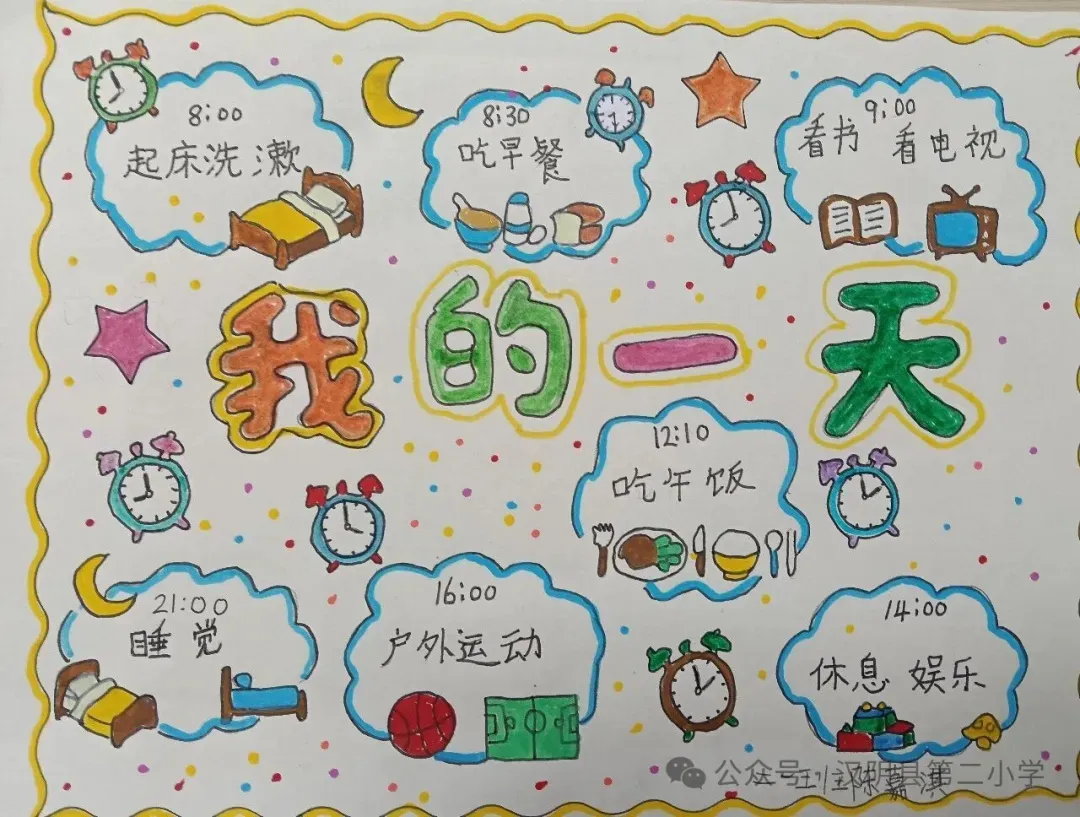 8:00
起床洗漱
8:30
吃早餐
9:00
看书 看电视
我的一天
12:10
吃午饭
21:00
睡觉
16:00
户外运动
14:00
休息 娱乐
公众号
汉阴县第二小学